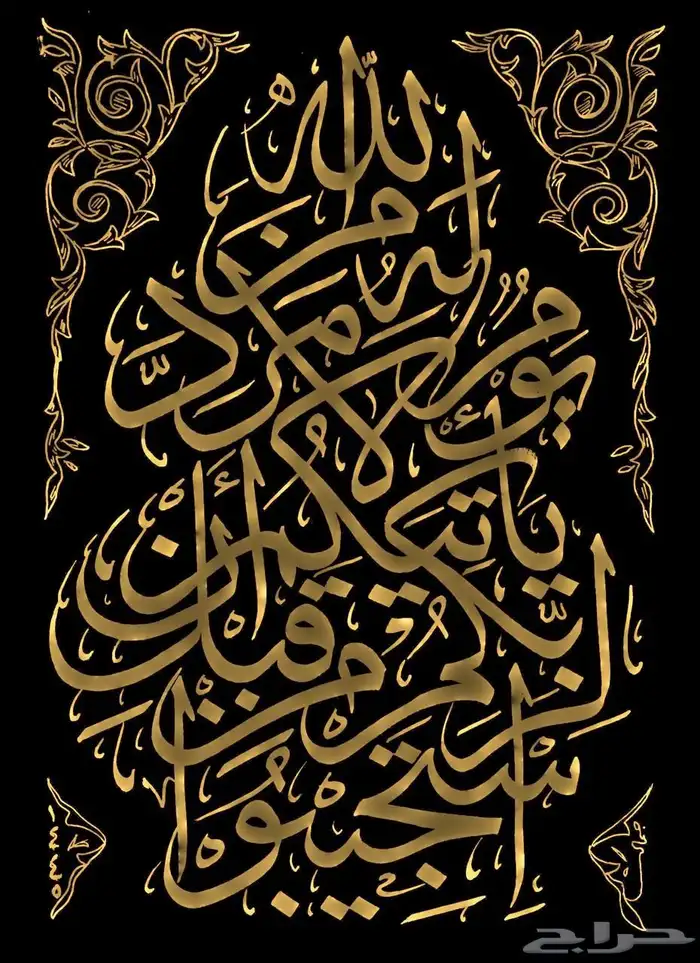 استجيبوا لربكم من قبل أن يأتيكم يوم لا مرد له من الله
حراج